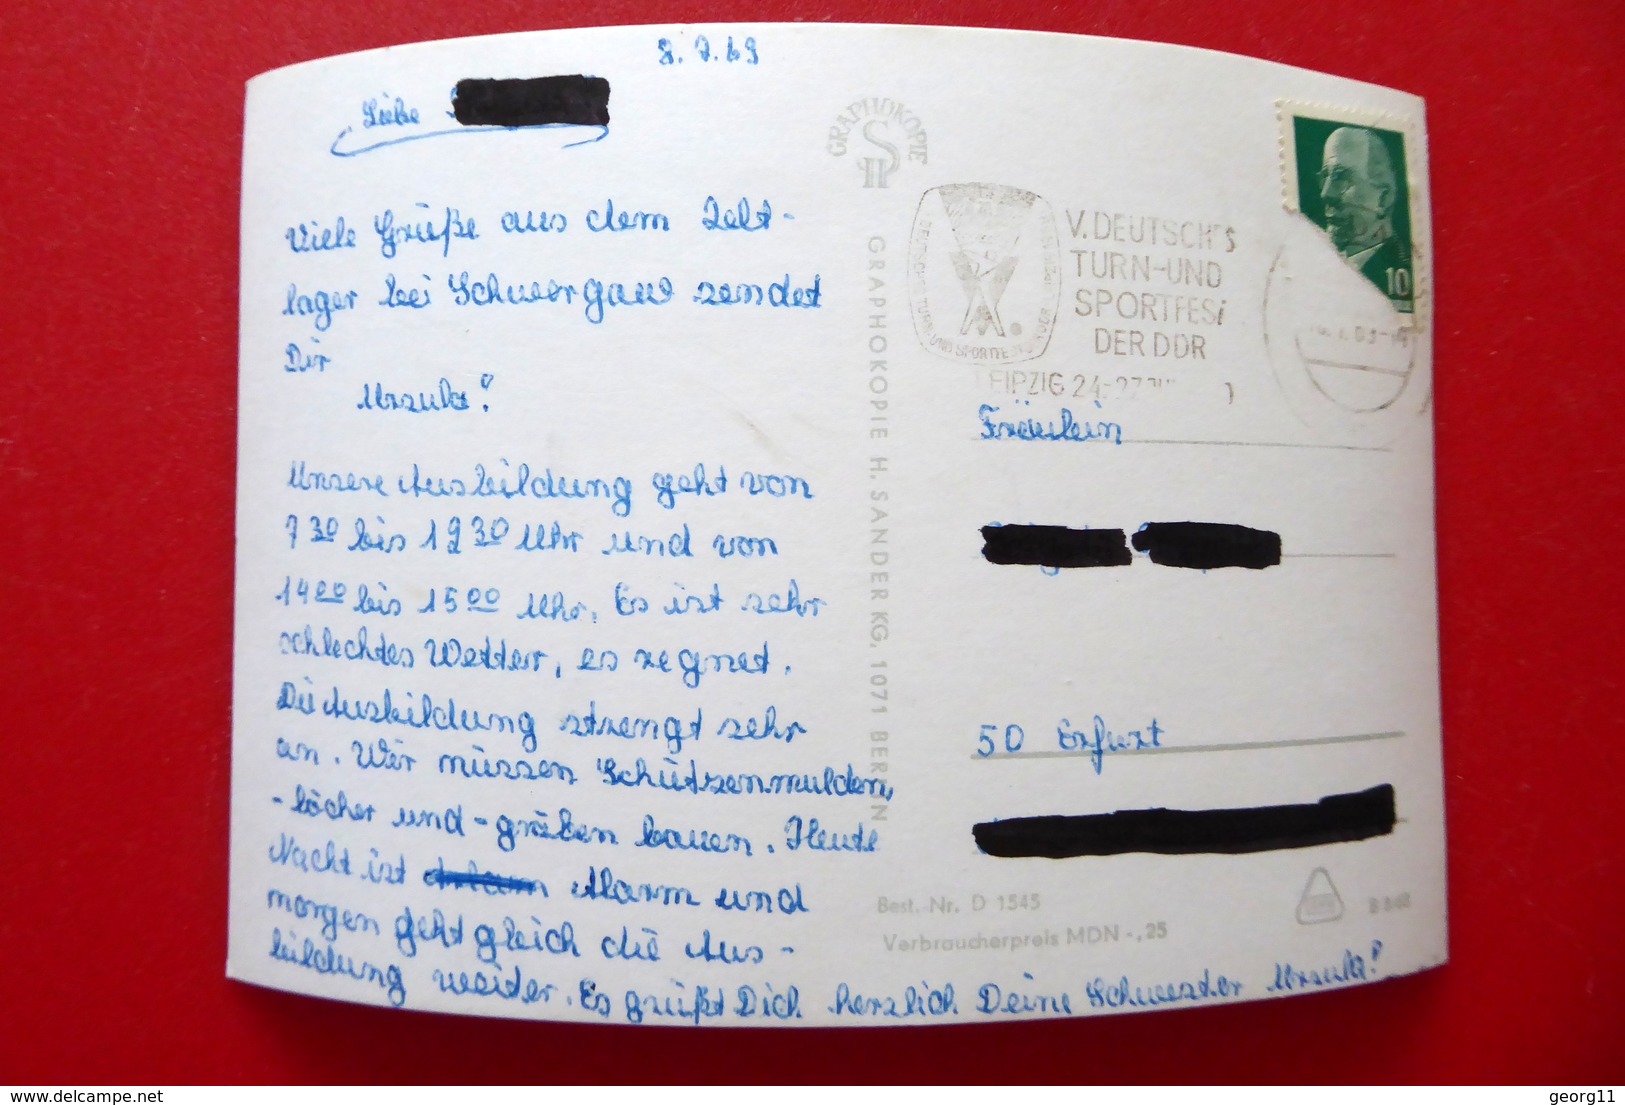 8.7.69
Liebe
Viele Grüße aus dem Zelt-
lager bei Schwergau sendet
Dir
Ursula!
Unsere Ausbildung geht von
7 30 bis 12 30 Uhr und von
14 00 bis 15 00 Uhr. Es ist sehr
schlechtes Wetter, es regnet.
Die Ausbildung strengt sehr
an. Wir müssen Schützenmulden,
-löcher und -gräben bauen. Heute
Nacht ist Alarm und
morgen geht gleich die Aus-
bildung weiter. Es grüßt Dich herzlich Deine Schwester Ursula!
GRAPHOKOPIE
H S
GRAPHOKOPIE H. SANDER KG, 1071 BERLIN
V. DEUTSCHES
TURN-UND
SPORTFEST
DER DDR
LEIPZIG 24-27
10
Fräulein
50 Erfurt
Best.-Nr. D 1545
Verbraucherpreis MDN -,25
delcampe.net
georg11